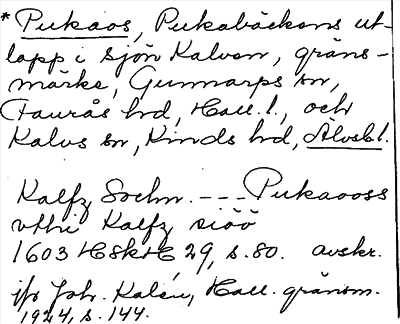 * Pukaos, Pukabäckens ut-
lopp i sjön Kalven, gräns-
märke, Gunnarps sn,
Faurås hd, Hall. l., och
Kalvs sn, Kinds hd, Älvsb l.
Kalfz Sochn. --- Pukaooss
vthi Kalfz siöö
1603 HSkH 29, s. 80. avskr.
jfr Joh. Kalén, Hall. gränsm.
1924, s. 144.